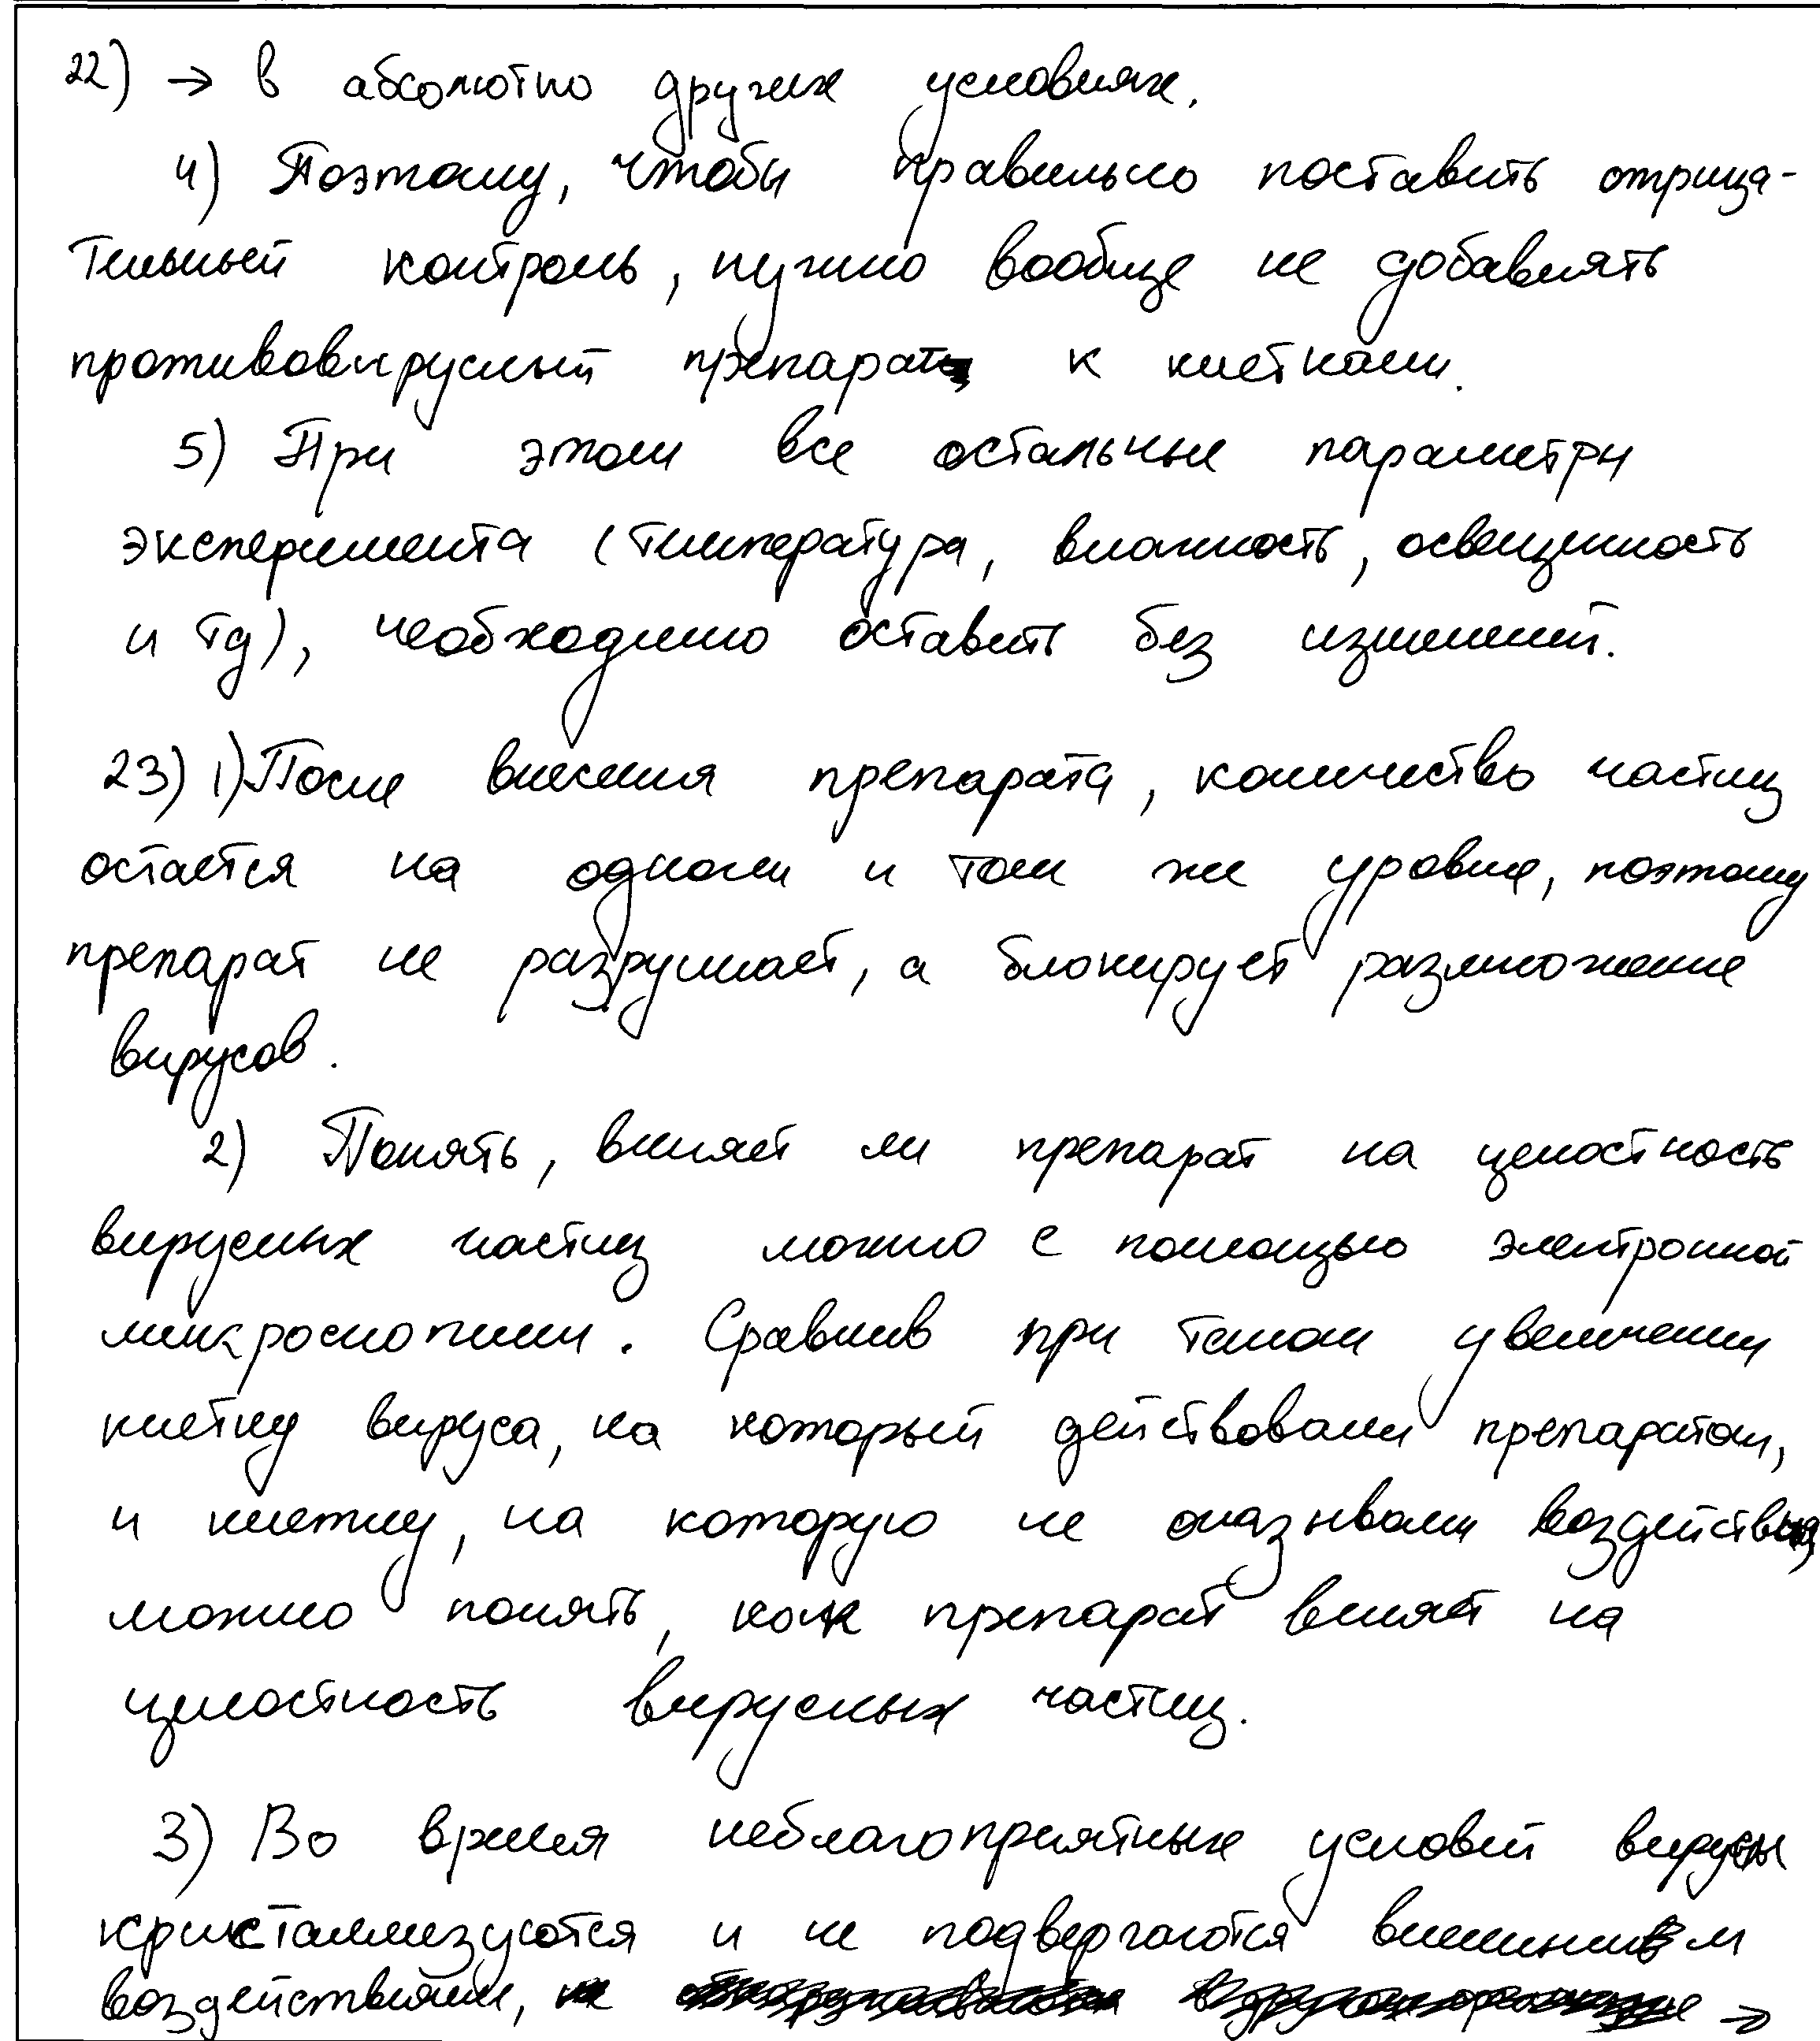 22) → в абсолютно других условиях.
4) Поэтому, чтобы правильно поставить отрица-
тельный контроль, нужно вообще не добавлять
противовирусный препарат к клеткам.
5) При этом все остальные параметры
эксперимента (температура, влажность, освещенность
и тд), необходимо оставить без изменений.
23) 1) После внесения препарата, количество частиц
остается на одном и том же уровне, поэтому
препарат не разрушает, а блокирует размножение
вирусов.
2) Понять, влияет ли препарат на целостность
вирусных частиц можно с помощью электронной
микроскопии. Сравнив при таком увеличении
клетку вируса, на который действовали препаратом,
и клетку, на которую не оказывали воздействия
можно понять, как препарат влияет на
целостность вирусных частиц.
3) Во время неблагоприятных условий вирусы
кристаллизуются и не подвергаются внешним
воздействиям, →